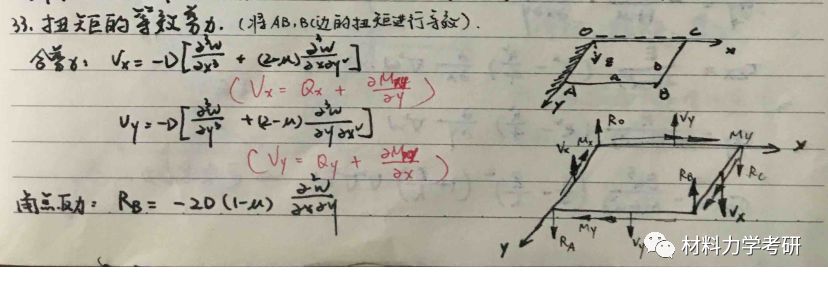 33. 扭矩的等效剪力. (将AB,BC边的扭矩进行等效).
合剪力: Vx = -D[∂³w/∂x³ + (2-μ) ∂³w/∂x∂y²]
( Vx = Qx + ∂Mxy/∂y )
Vy = -D[∂³w/∂y³ + (2-μ) ∂³w/∂y∂x²]
( Vy = Qy + ∂Mxy/∂x )
角点反力: RB = -2D(1-μ) ∂²w/∂x∂y
O C x
z b
A a B
y
R0 Vy
Vx Mx My x
RB RC
Vx
y RA My Vy
材料力学考研